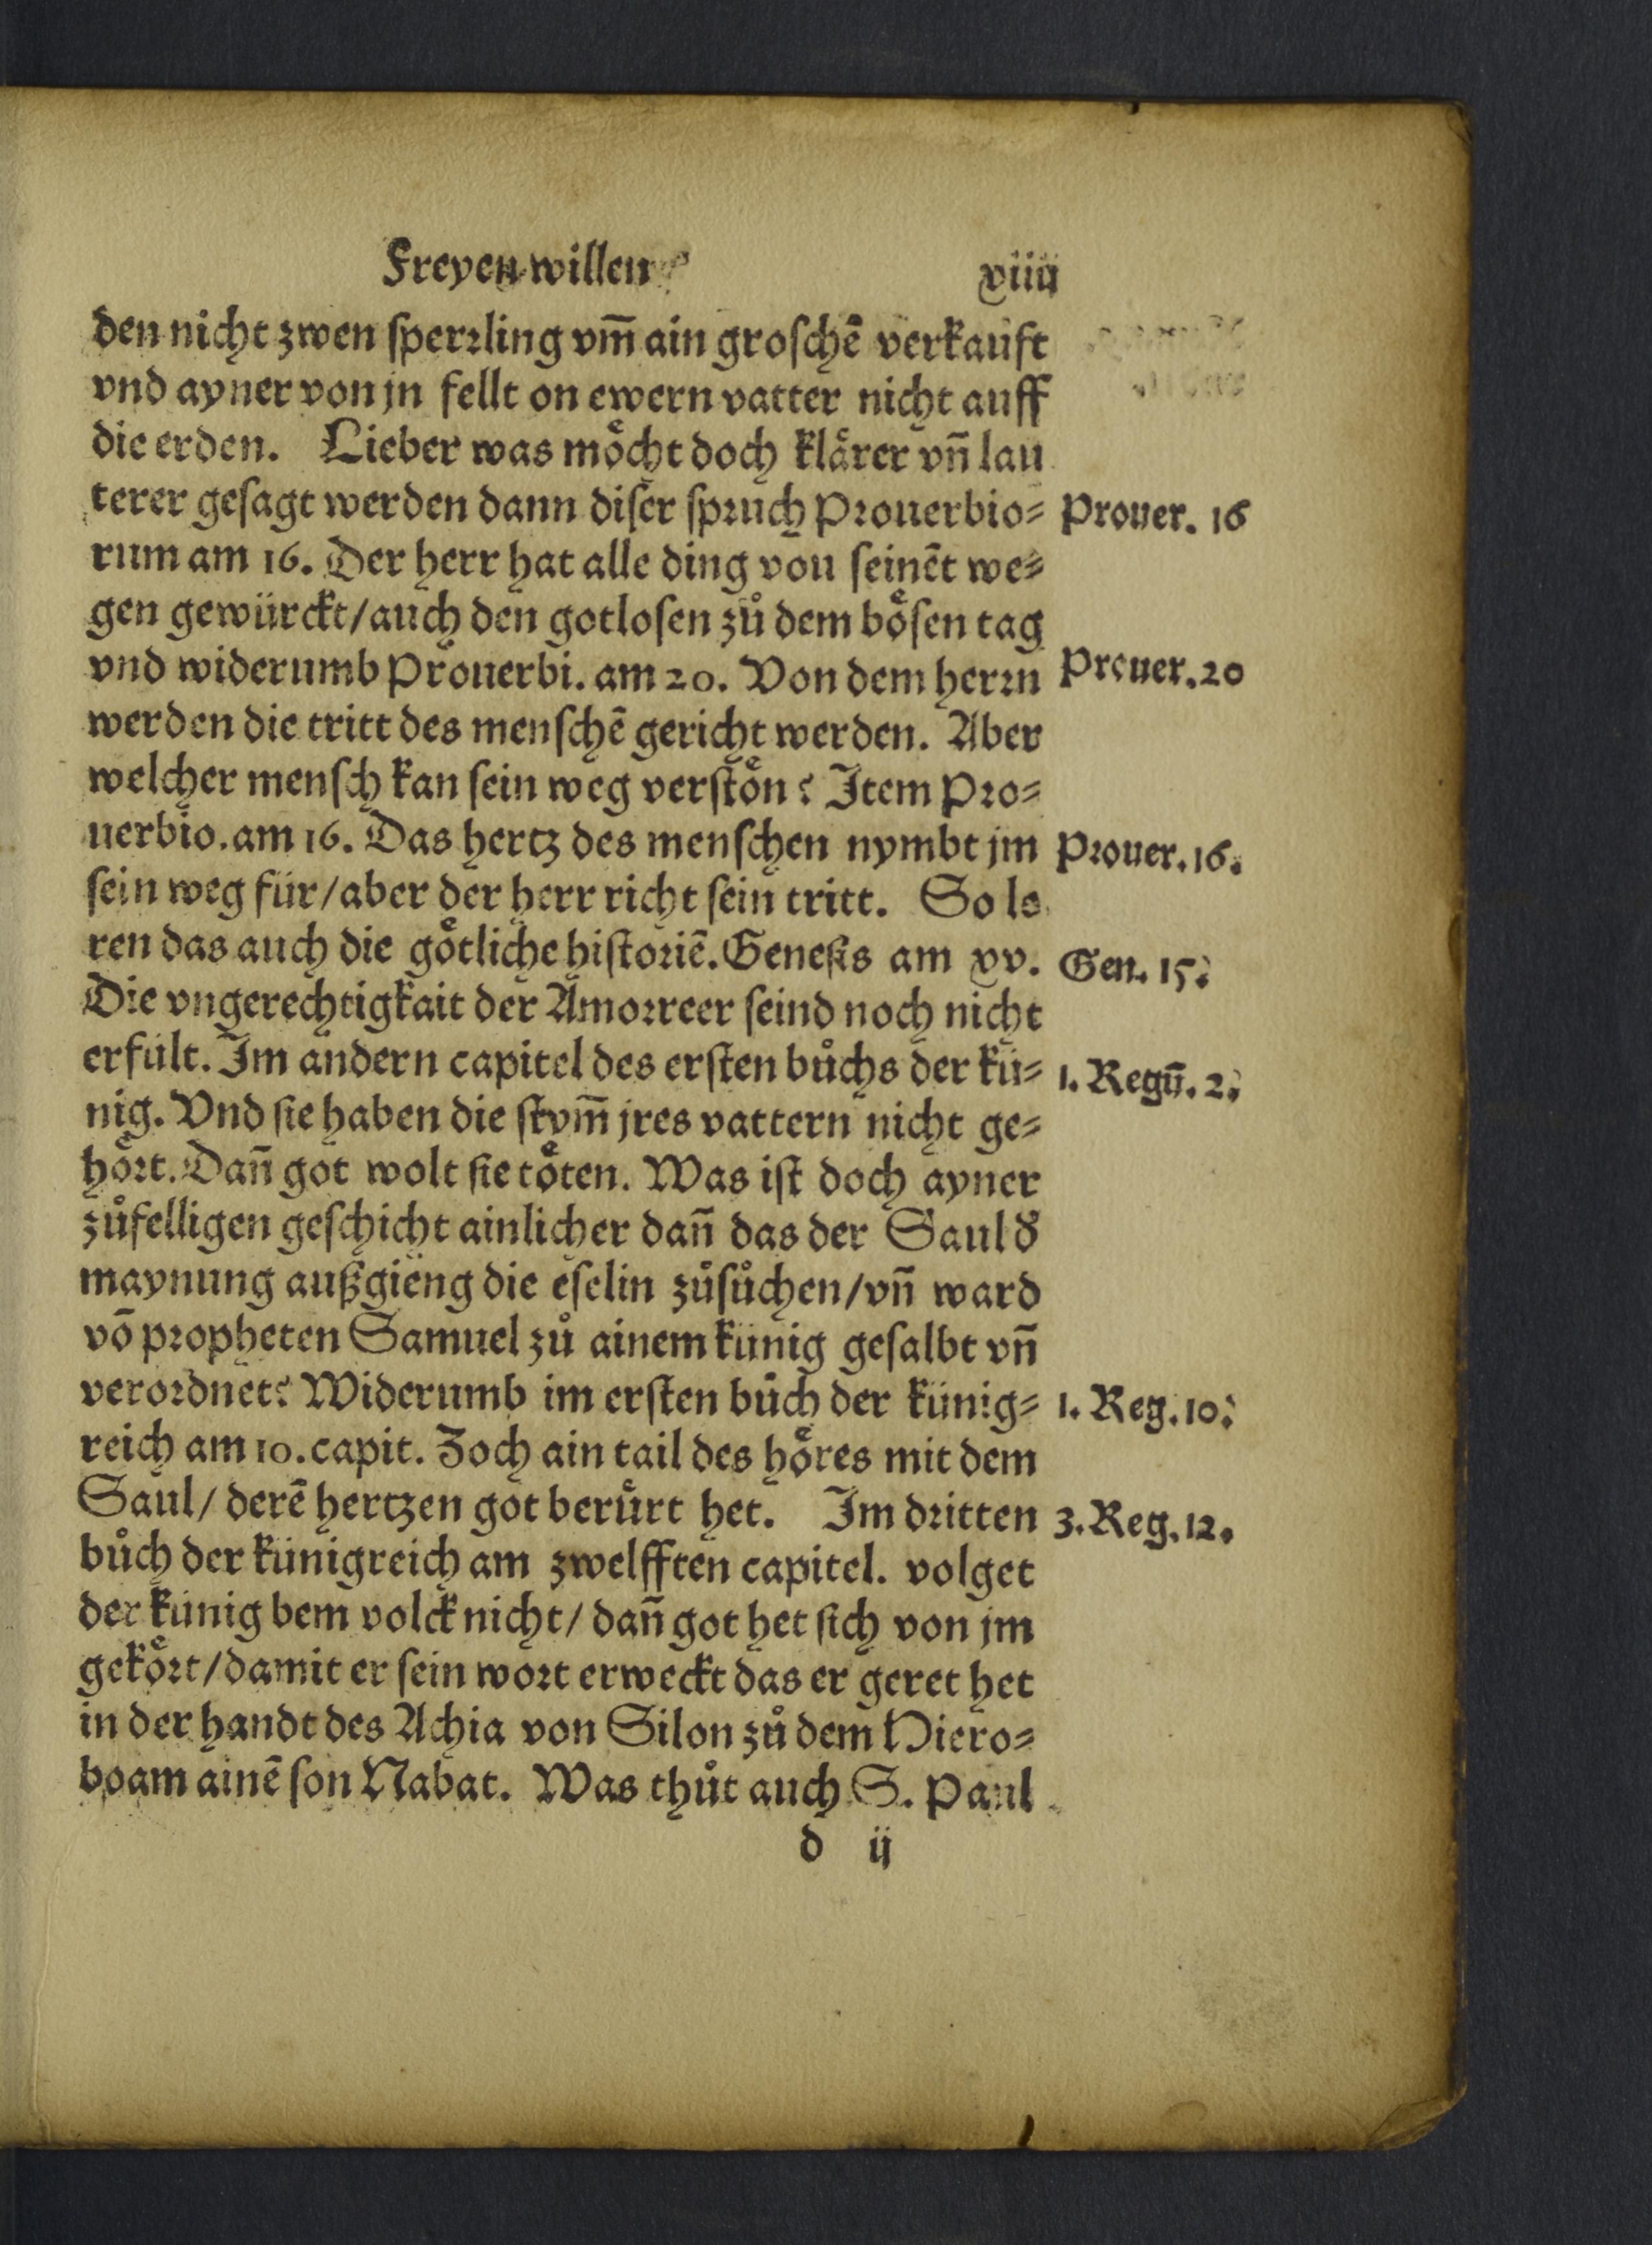 Freyen willen
xiiij
den nicht zwen sperꝛling vm̃ ain groschē verkauft
vnd ayner von jn fellt on ewern vatter nicht auff
die erden. Lieber was moͤcht doch klaͤrer vñ lau
terer gesagt werden dann diser spꝛuch Pꝛouerbio⸗
Prouer. 16
rum am 16. Der herr hat alle ding von seinēt we⸗
gen gewürckt/auch den gotlosen zů dem boͤsen tag
vnd widerumb Prouerbi. am 20. Von dem herꝛn
Prouer. 20
werden die tritt des menschē gericht werden. Aber
welcher mensch kan sein weg verstoͤn? Item Pꝛo⸗
uerbio. am 16. Das hertz des menschen nymbt jm
Pꝛouer. 16.
sein weg für/aber der herr richt sein tritt. So le
ren das auch die goͤtliche histoꝛiē. Genesis am xv.
Gen. 15.
Die vngerechtigkait der Amoꝛreer seind noch nicht
erfült. Im andern capitel des ersten bůchs der kü⸗
1. Regū. 2.
nig. Vnd sie haben die stym̃ jres vattern nicht ge⸗
hoͤꝛt. Dañ got wolt sie toͤten. Was ist doch ayner
zůfelligen geschicht ainlicher dañ das der Saul d̕
maynung außgieng die eselin zůsůchen/vñ ward
vō pꝛopheten Samuel zů ainem künig gesalbt vñ
veroꝛdnet? Widerumb im ersten bůch der künig⸗
1. Reg. 10.
reich am 10. capit. Zoch ain tail des hoͤres mit dem
Saul/ derē hertzen got beruͤrt het. Im dꝛitten
3. Reg. 12.
bůch der künigreich am zwelfften capitel. volget
der künig bem volck nicht/ dañ got het sich von jm
gekoͤꝛt/damit er sein woꝛt erweckt das er geret het
in der handt des Achia von Silon zů dem Hiero⸗
boam ainē son Nabat. Was thůt auch S. Paul
d ij